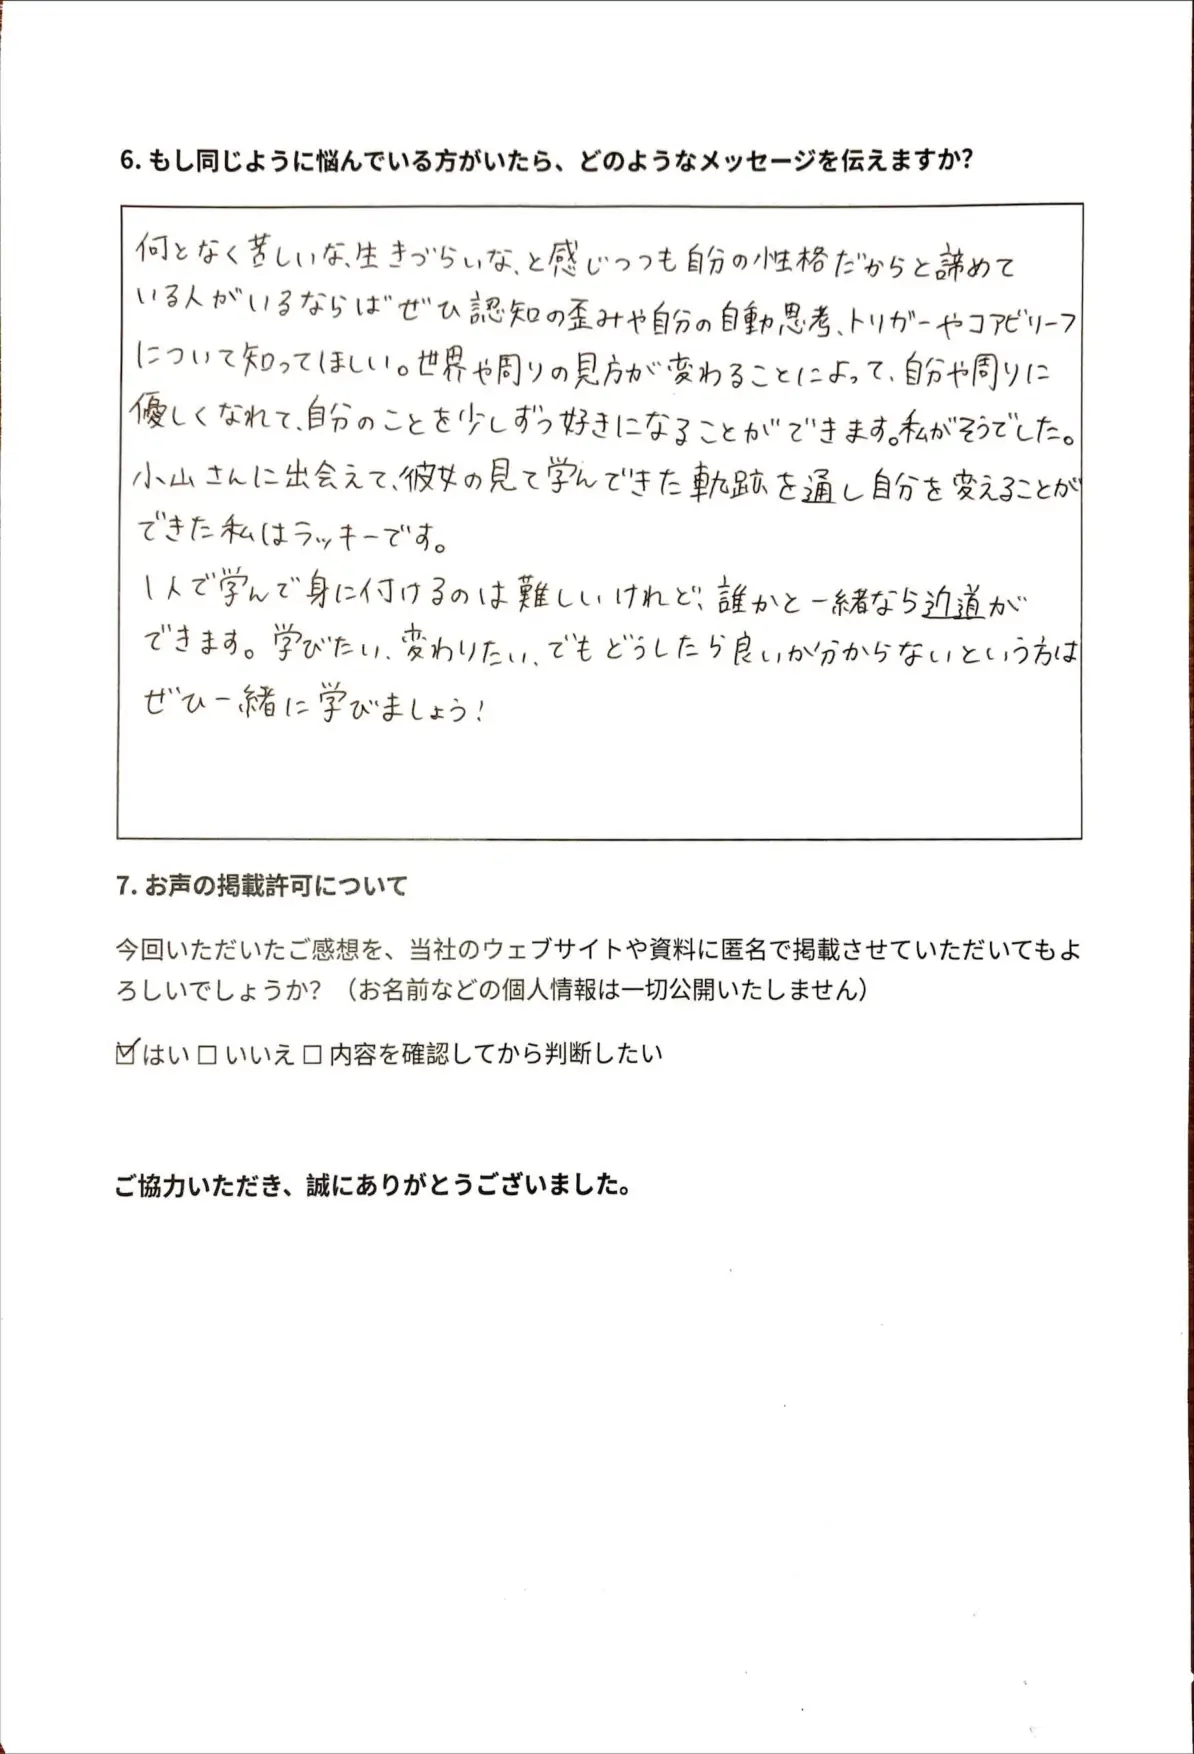 6. もし同じように悩んでいる方がいたら、どのようなメッセージを伝えますか？
何となく苦しいな、生きづらいな、と感じつつも自分の性格だからと諦めて
いる人がいるならばぜひ認知の歪みや自分の自動思考、トリガーやコアビリーフ
について知ってほしい。世界や周りの見方が変わることによって、自分や周りに
優しくなれて、自分のことを少しずつ好きになることができます。私がそうでした。
小山さんに出会えて、彼女の見て学んできた軌跡を通し自分を変えることが
できた私はラッキーです。
1人で学んで身に付けるのは難しいけれど、誰かと一緒なら近道が
できます。学びたい、変わりたい、でもどうしたら良いか分からないという方は
ぜひ一緒に学びましょう！
7. お声の掲載許可について
今回いただいたご感想を、当社のウェブサイトや資料に匿名で掲載させていただいてもよ
ろしいでしょうか？（お名前などの個人情報は一切公開いたしません）
☑はい ☐ いいえ ☐ 内容を確認してから判断したい
ご協力いただき、誠にありがとうございました。